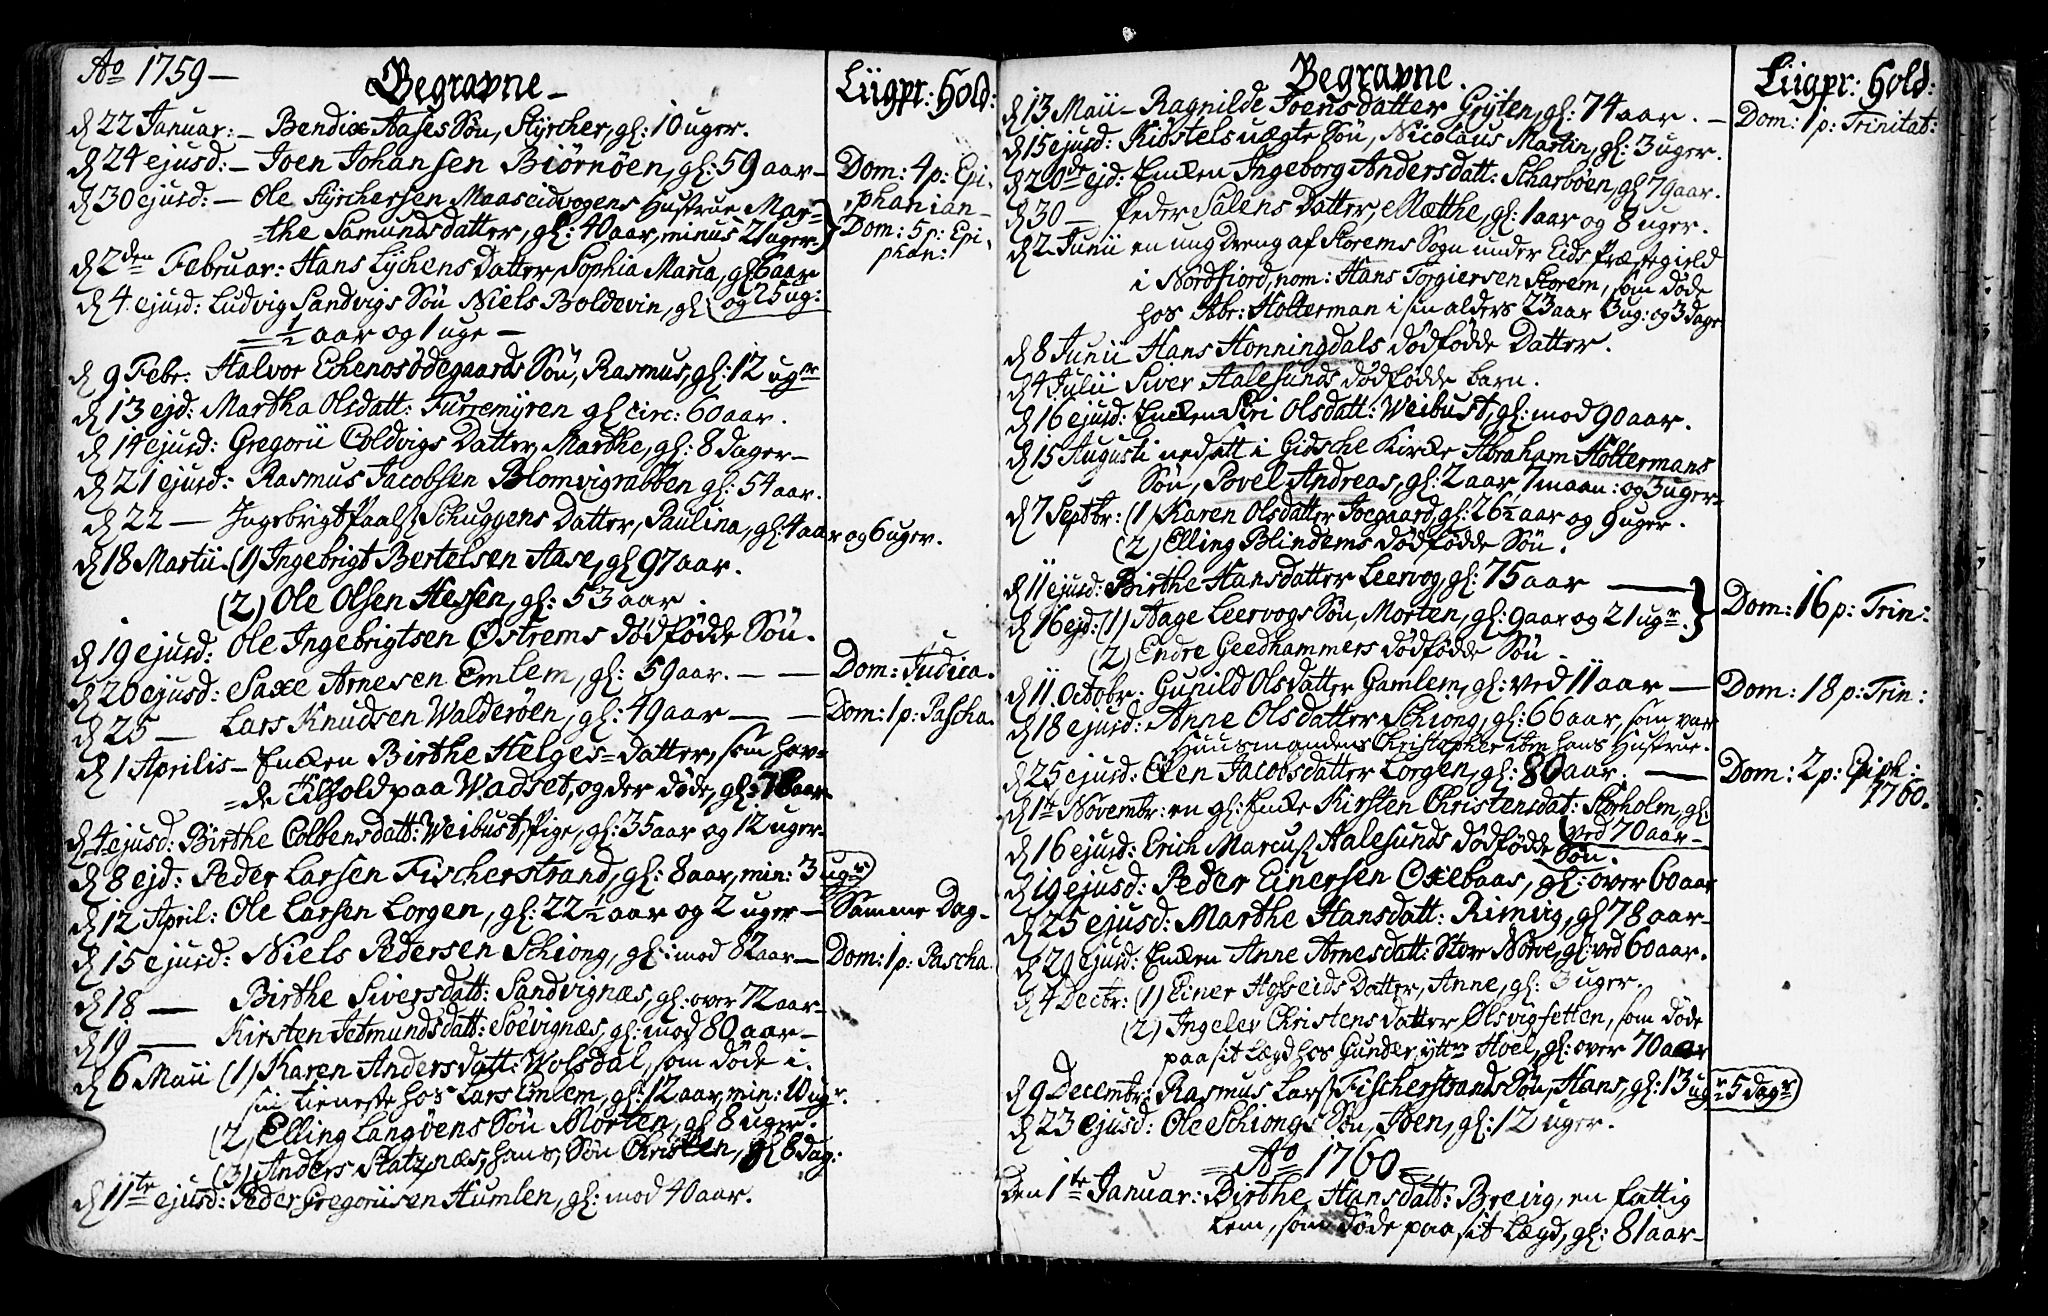 Ao 1759 –
Begravne –
Liigpr: Hold:
d 22 Januar: – Bendix Aases Søn, Styrcher, gl: 10 uger.
d 24 ejusd: – Joen Johansen Biørnøen, gl: 59 aar –
Dom: 4 p: Epi-
phanian –
d 30 ejusd: – Ole Styrchersen Maaseidvogens Hustrue Mar=
=the Samundsdatter, gl: 40 aar, minus 21 uger –
Dom: 5 p: Epi-
phan:
d 2den Februar: Hans Lychens Datter, Sophia Maria, gl 6 aar
og 25 ug:
d 4 ejusd: Ludvig Sandvigs Søn Niels Boldevin, gl
½ aar og 1 uge –
d 9 Febr. Halvor Echenosødegaards Søn, Rasmus, gl: 12 ugr
d 13 ejd: Martha Olsdatt: Furremyren gl circ: 60 aar.
d 14 ejusd: Gregorii Coldvigs Datter, Marthe, gl: 8 dager –
d 21 ejusd: Rasmus Jacobsen Blomvigrabben gl: 54 aar.
d 22 — Ingebrigt Paals: Schuggens Datter, Paulina, gl: 4 aar og 6 uger.
d 18 Martii. (1) Ingebrigt Bertelsen Aase, gl 97 aar.
(2) Ole Olsen Hessen, gl: 53 aar.
d 19 ejusd: Ole Ingebrigtsen Østrems dødfødde Søn.
d 20 ejusd: Saxe Arnesen Emlem, gl: 59 aar. — —
Dom: Judica.
d 25 — Lars Knudsen Walderøen, gl: 49 aar — —
Dom: 1 p: Pascha.
d 1 Aprilis – Enken Birthe Helges=datter, som hav=
=de tilhold paa Wadset, og der døde, gl: 78 aar
d 4 ejusd: Birthe Colbensdatt: Weibust, Pige, gl: 35 aar og 12 uger –
d 8 ejd: Peder Larsen Fischerstrand, gl: 8 aar, min: 3 ugr
d 12 April: Ole Larsen Lorgen, gl: 22½ aar og 2 uger —
Samme Dag –
d 15 ejusd: Niels Pedersen Schiong, gl: mod 82 aar —
Dom: 1 p: Pascha.
d 18 — Birthe Siversdatt: Sandvignæs, gl: over 72 aar –
d 19 — Kirsten Jetmundsdatt: Soevignæs, gl: mod 80 aar –
d 6 Maii (1) Karen Andersdatt: Wolsdal, som døde i
sin tieneste hos Lars Emlem, gl: 12 aar, min: 10 ugr.
(2) Elling Langøens Søn Morten, gl 8 uger.
(3) Anders Slatznæs, hans Søn Christen, gl 8 dag:
d 11te ejusd: Peder Gregoriisen Humlen, gl: mod 40 aar.
Begravne.
Liigpr: Hold:
d 13 Maii – Ragnilde Joensdatter Gryten, gl: 74 aar. –
Dom: 1 p: Trinitat:
d 15 ejusd: Kiøstels uægte Søn, Nicolaus Martin, gl: 3 uger.
d 20de ejd: Enken Ingeborg Andersdatt: Scharbøen, gl 79 aar.
d 30 — Peder Salens Datter, Mætthe, gl: 1 aar og 8 uger.
d 2 Junii en ung Dreng af Storems Sogn under Eids Præstegield
i Nordfiord, nom: Hans Torgiersen Storem, som døde
hos Abr: Holterman i sin alders 23 aar 3 ug: og 3 dage
d 8 Junii Hans Honningdals dødfødde Datter.
d 4 Julii Siver Aalesunds dødfødde barn.
d 16 ejusd: Enken Siri Olsdatt: Weibust, gl: mod 90 aar.
d 15 Augusti nedsatt i Gidsche Kirke Abraham Holtermans
Søn, Povel Andreas, gl: 2 aar, 7 maan: og 3 uger –
d 7 Septbr: (1) Karen Olsdatter Joegaard, gl: 26½ aar og 9 uger.
(2) Elling Blindems dødfødde Søn.
d 11 ejusd: Birthe Hansdatter Leervog, gl: 75 aar —
d 16 ejd: (1) Aage Leervogs Søn, Morten, gl: 9 aar og 21 ugr.
Dom: 16 p: Trin:
(2) Endre Geedhammers dødfødde Søn –
d 11 Octobr: Gunild Olsdatter Gamlem, gl: ved 11 aar —
Dom: 18 p: Trin:
d 18 ejusd: Anne Olsdatter Schiong, gl: 66 aar, som var
Huusmandens Christopher hans Hustrue.
d 25 ejusd: Elen Jacobsdatter Lorgen, gl: 80 aar. —
Dom: 2 p: Epiph:
1760.
d 1te Novembr: en gl: Enke Kirsten Christensdat: Storholm, gl:
ved 70 aar –
d 16 ejusd: Erich Marcus: Aalesunds dødfødde Søn.
d 19 ejusd: Peder Einersen Oxebaas, gl: over 60 aar
d 25 ejusd: Marthe Hansdatt: Rimvig, gl 78 aar –
d 29 ejusd: Enken Anne Arnesdatt: Store Nørve, gl: ved 60 aar.
d 4 Decbr: (1) Einer Hofseids Datter, Anne, gl: 3 uger.
(2) Ingeler Christens datter Olsvigsetten, som døde
paa sit Lægd hos Gunder yttre Hoel, gl: over 70 aar
d 9 Decembr: Rasmus Lars: Fischerstrands Søn, Hans, gl: 13 ugr 5 dagr
d 23 ejusd: Ole Schiongs Søn, Joen, gl: 12 uger.
= Ao 1760 =
den 1te Januar: Birthe Hansdatt: Brevig, en fattig
Lem, som døde paa sit Lægd, gl: 81 aar –